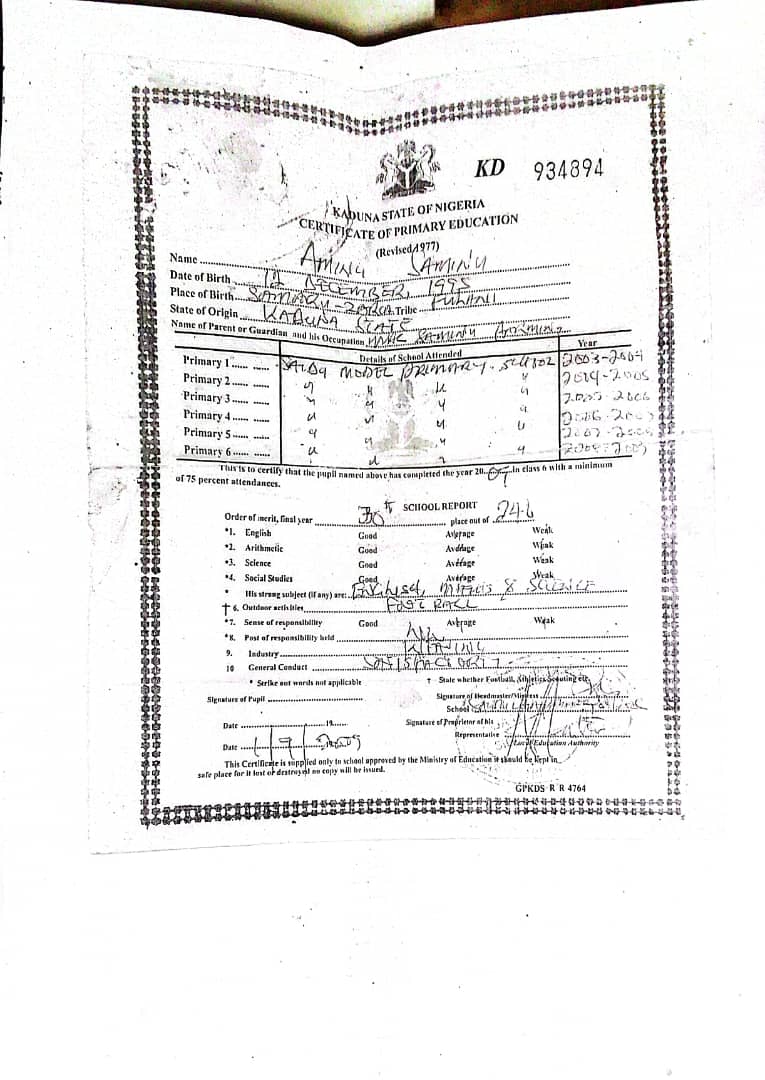 KD 934894
KADUNA STATE OF NIGERIA
CERTIFICATE OF PRIMARY EDUCATION
(Revised 1977)
Name AMINU SAMINU
Date of Birth 12 DECEMBER, 1995
Place of Birth SAMARU-ZARIA Tribe FULANI
State of Origin KADUNA STATE
Name of Parent or Guardian and his Occupation SAMINU
Details of School Attended Year
Primary 1 MODEL PRIMARY SCHOOL 2003-2004
Primary 2 " " " " -2005
Primary 3 " " " " 2005-2006
Primary 4 " " " "
Primary 5 " " " "
Primary 6 " " " "
This is to certify that the pupil named above has completed the year 20 09 in class 6 with a minimum
of 75 percent attendances.
SCHOOL REPORT
Order of merit, final year place out of 246
*1. English Good Average Weak
*2. Arithmetic Good Average Weak
*3. Science Good Average Weak
*4. Social Studies Good Average Weak
* His strong subject (if any) are: & SCIENCE
† 6. Outdoor activities FOOT BALL
*7. Sense of responsibility Good Average Weak
*8. Post of responsibility held
9. Industry
10 General Conduct
* Serike out words not applicable † - State whether Football, Athletics Scouting etc
Signature of Pupil Signature of Headmaster/Mistress
School
Date 19 Signature of Proprietor of his
Representative
Date 1/9/2009 Local Education Authority
This Certificate is supplied only to school approved by the Ministry of Education it should be kept in
safe place for it lost or destroyed no copy will be issued.
GPKDS R R 4764